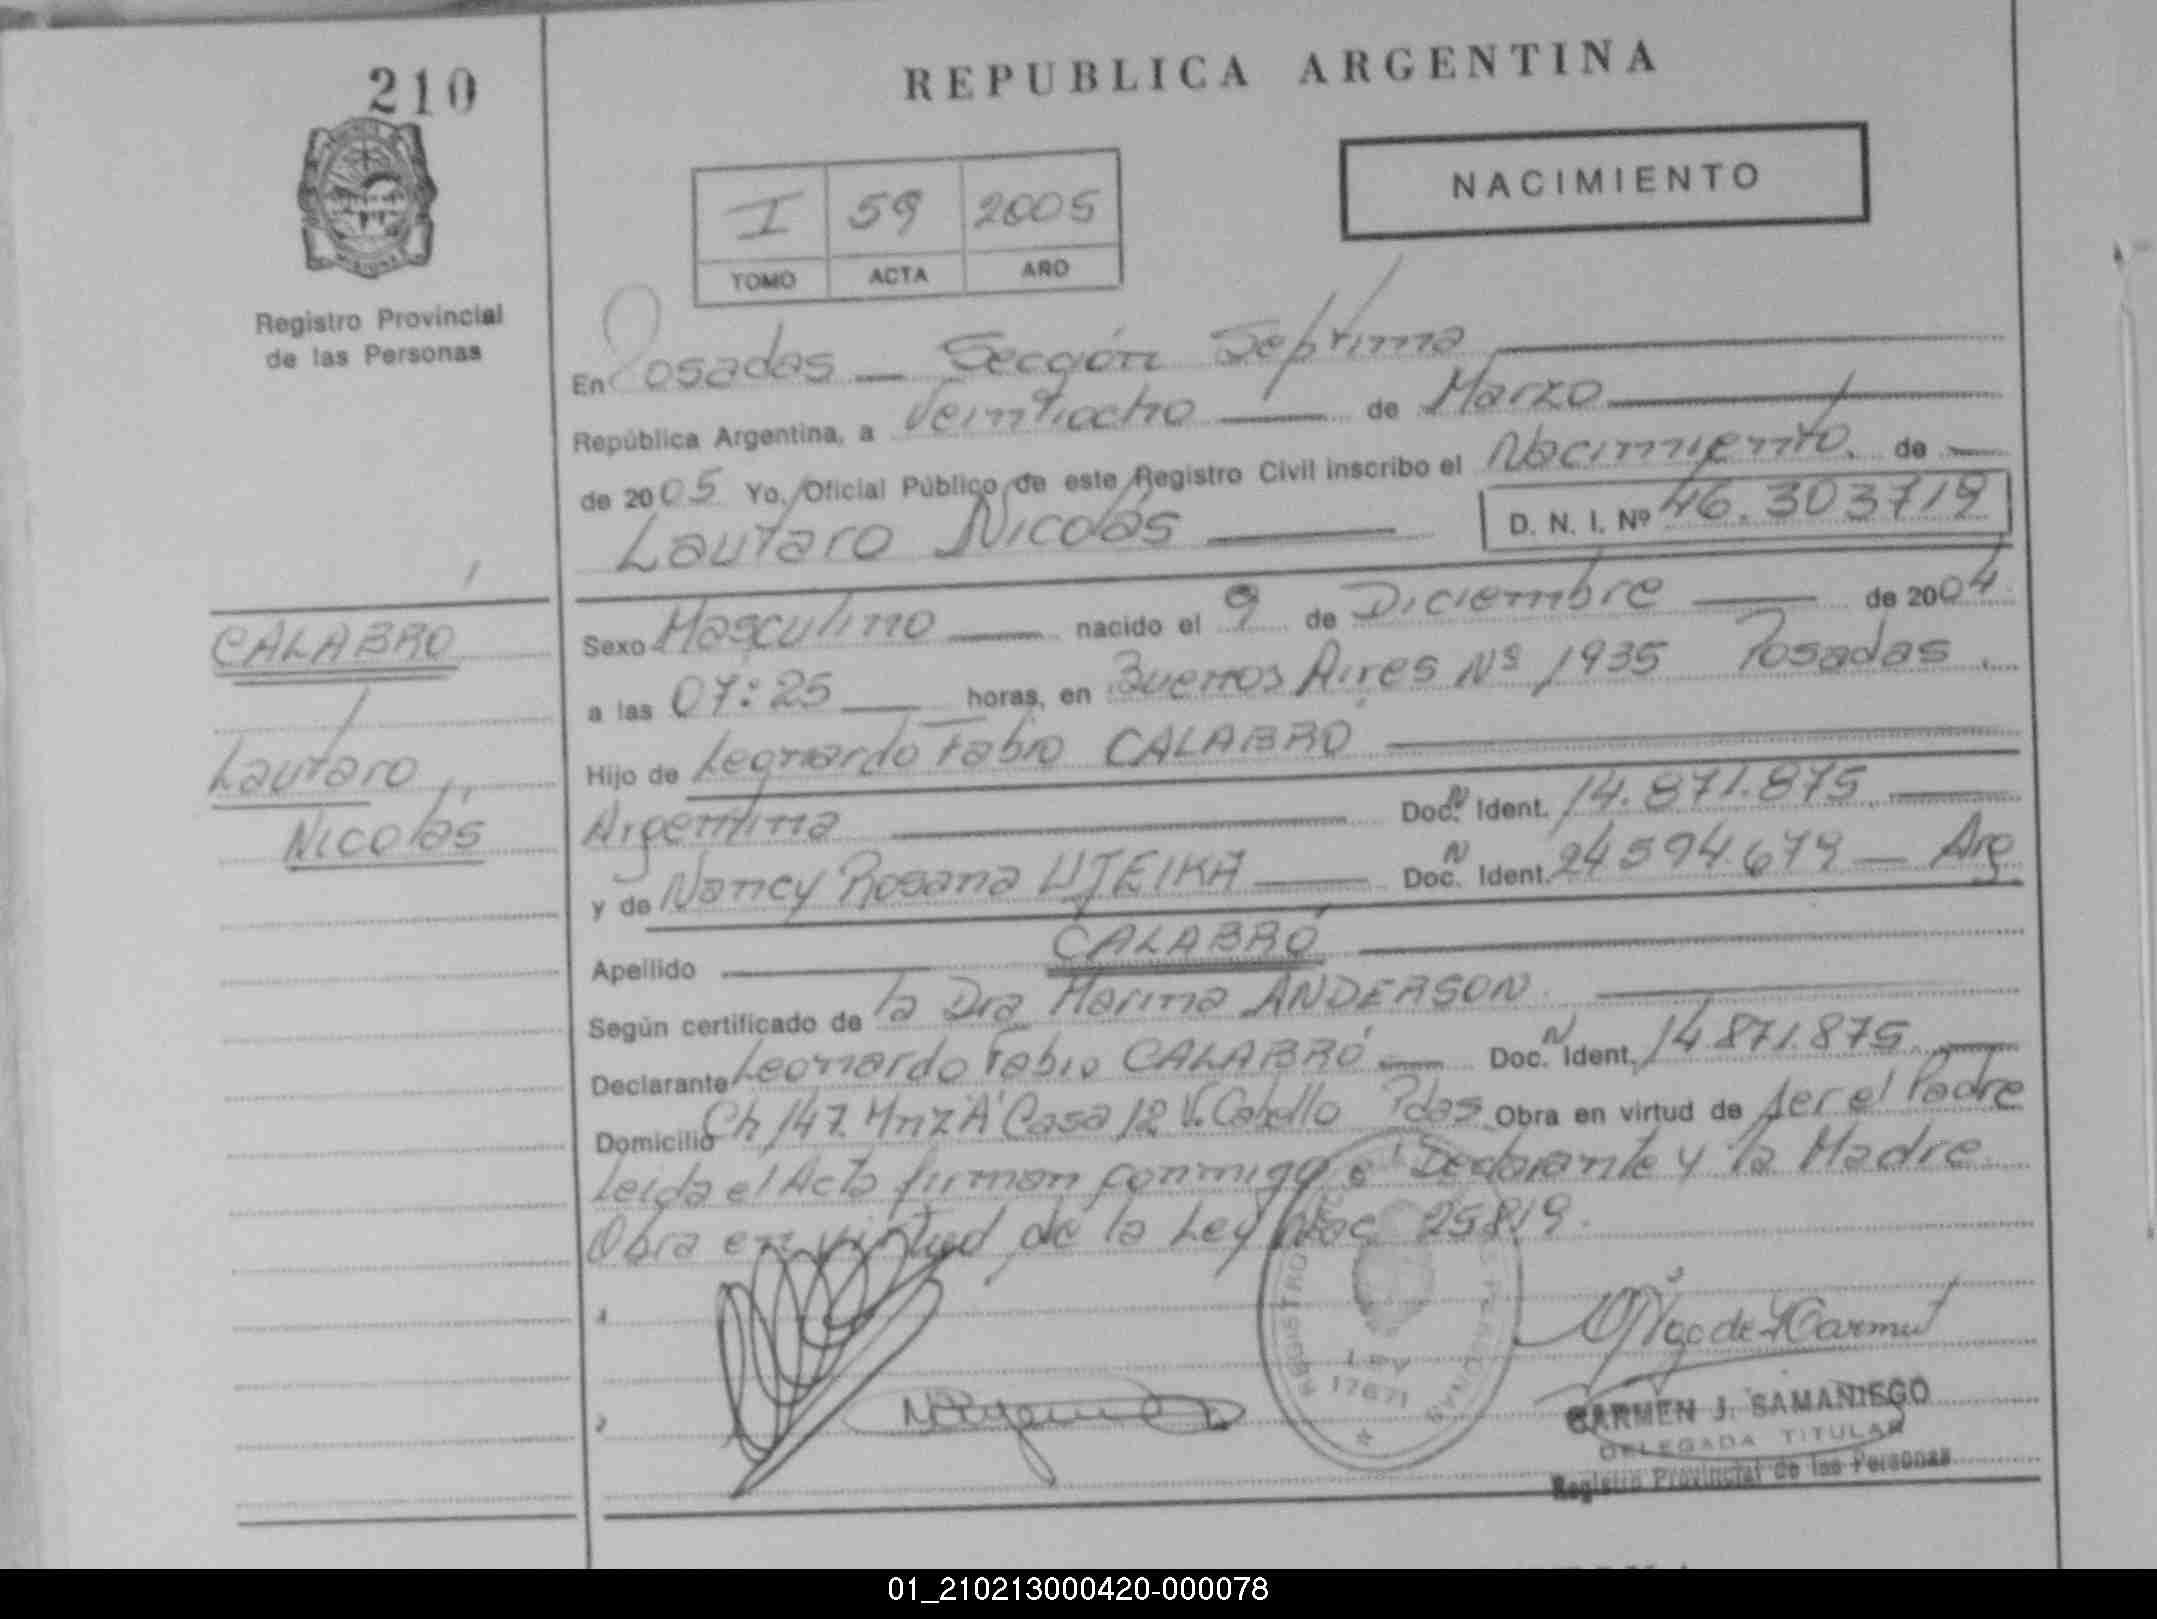 210
REPUBLICA ARGENTINA
NACIMIENTO
I 59 2005
TOMO ACTA AÑO
Registro Provincial
de las Personas
En Posadas — Sección Septima
República Argentina, a Veintiocho de Marzo
de 2005 Yo, Oficial Público de este Registro Civil inscribo el Nacimiento. de
Lautaro Nicolás D. N. I. Nº 46.303719
CALABRO
Lautaro
Nicolás
Sexo Masculino nacido el 9 de Diciembre de 2004
a las 07:25 horas, en Buenos Aires Nº 1935 Posadas.
Hijo de Leonardo Fabio CALABRÓ
Argentina Doc. N Ident. 14.871.875
y de Nancy Rosana UJEIKA Doc. N Ident. 24594.679 — Arg
Apellido CALABRÓ
Según certificado de la Dra Marina ANDERSON
Declarante Leonardo Fabio CALABRÓ Doc. N Ident. 14871.875
Domicilio Ch 147 Mnz A Casa 12 V. Cabello Pdas Obra en virtud de ser el Padre
Leida el Acta firman conmigo el Declarante y la Madre
Obra en virtud de la Ley Nac 25819.
REGISTRO PERSONAS
LEY
17671
CARMEN J. SAMANIEGO
DELEGADA TITULAR
Registro Provincial de las Personas
01_210213000420-000078